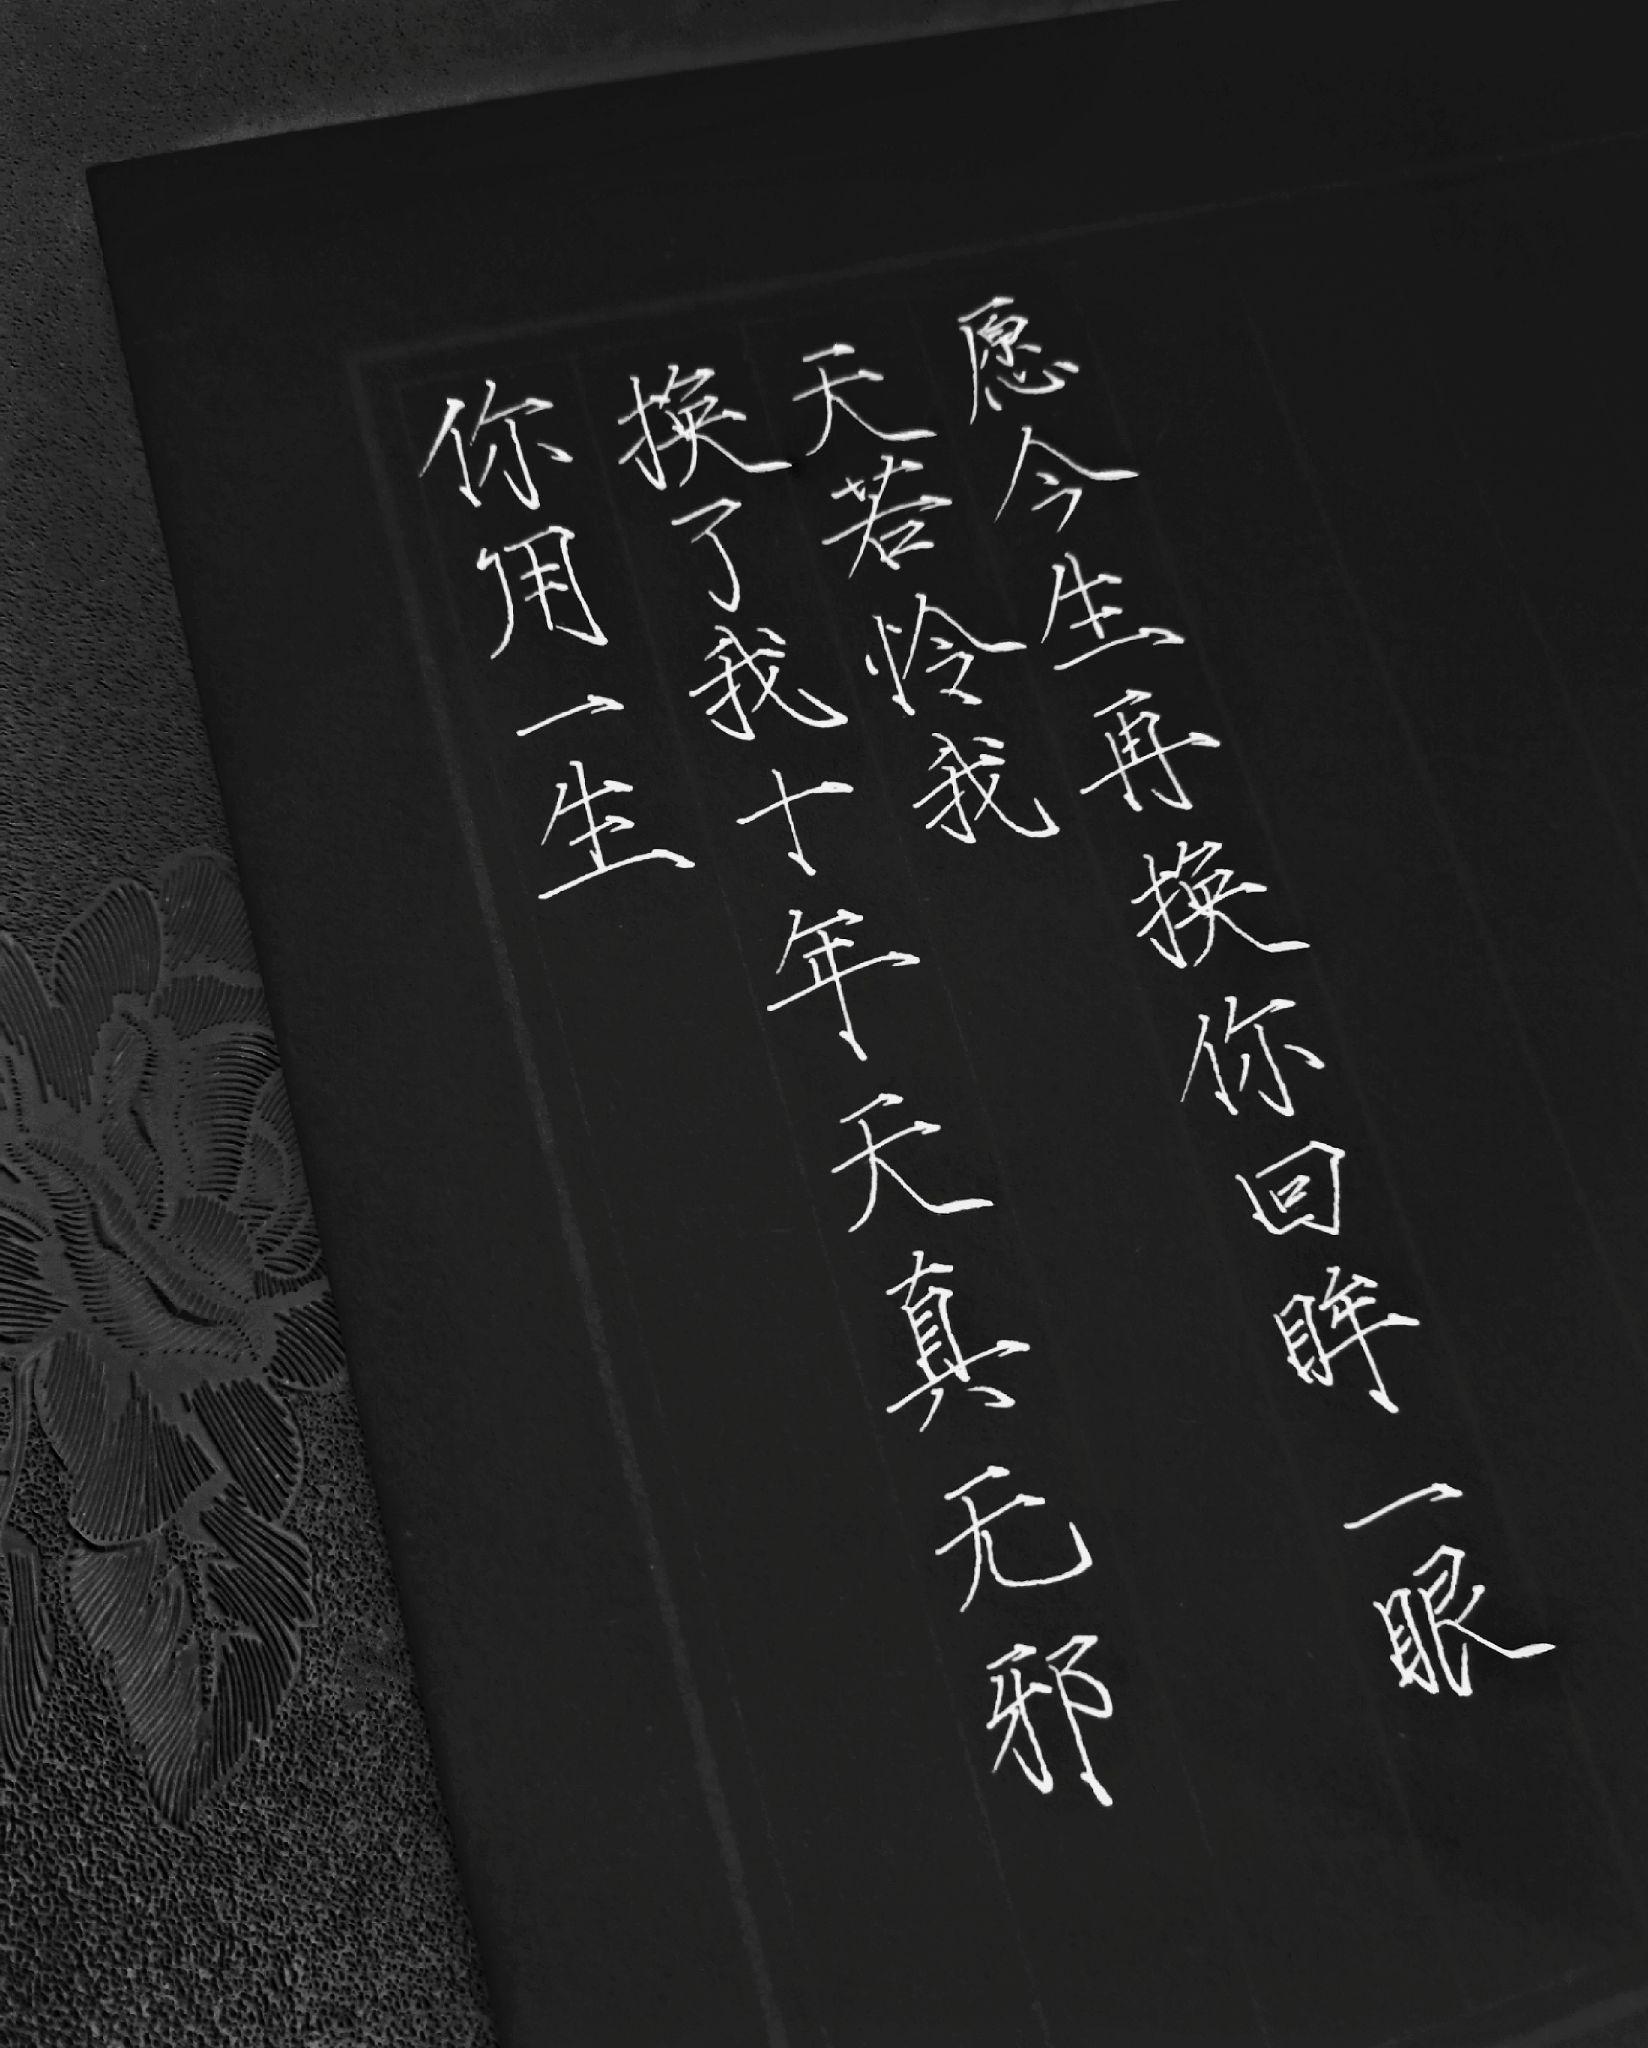 你用一生
换了我十年天真无邪
天若怜我
愿今生再换你回眸一眼